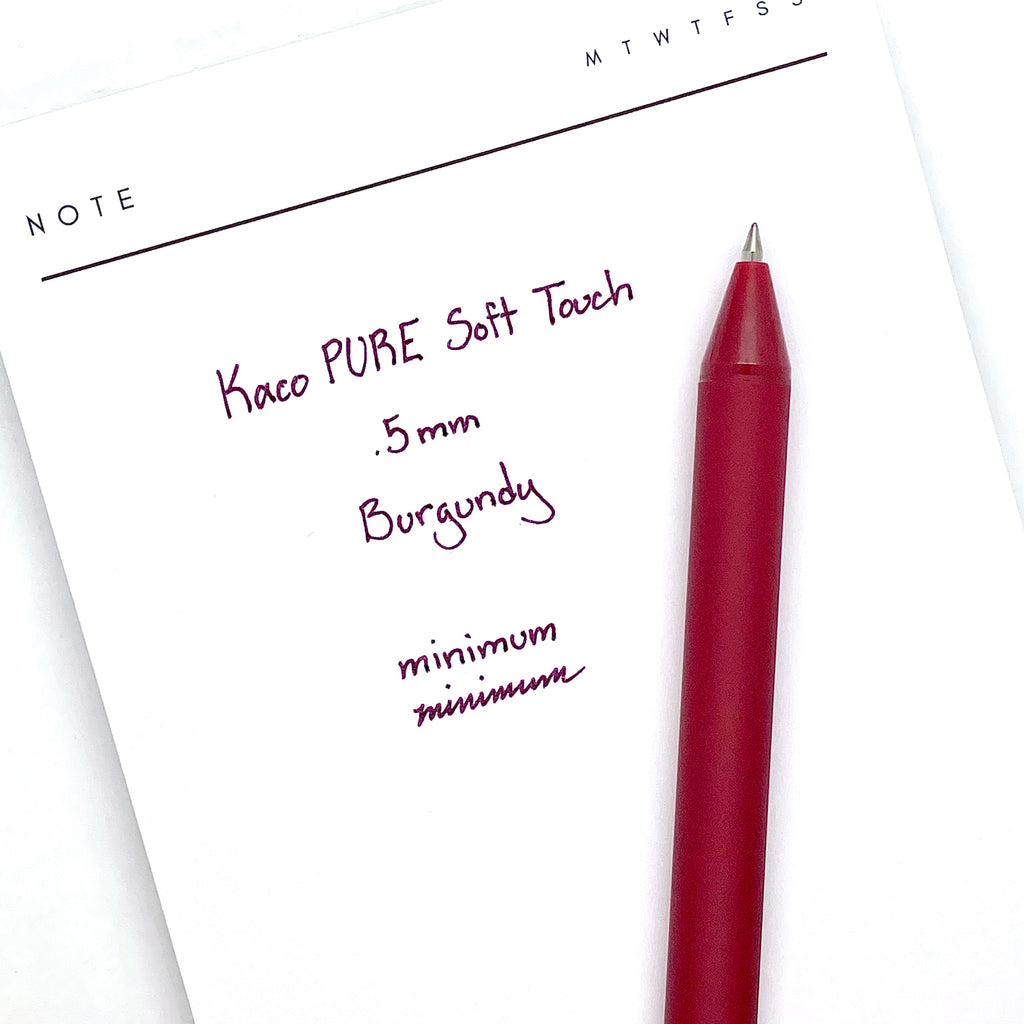 M T W T F S S
NOTE
Kaco PURE Soft Touch
.5mm
Burgundy
minimum
minimum